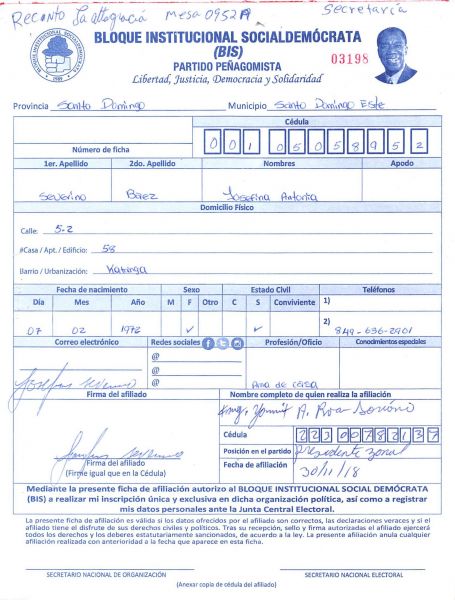 Reconto La altagracia Mesa 0952A Secretaria
BLOQUE INSTITUCIONAL SOCIALDEMÓCRATA
(BIS)
03198
PARTIDO PEÑAGOMISTA
Libertad, Justicia, Democracia y Solidaridad
BLOQUE INSTITUCIONAL SOCIALDEMOCRATA
Provincia Santo Domingo Municipio Santo Domingo Este
Cédula
Número de ficha 0 0 1 0 5 0 5 8 9 5 2
1er. Apellido 2do. Apellido Nombres Apodo
Severino Baez Josefina Antonia
Domicilio Físico
Calle: 5-2
#Casa / Apt. / Edificio: 58
Barrio / Urbanización: Katanga
Fecha de nacimiento Sexo Estado Civil Teléfonos
Día Mes Año M F Otro C S Conviviente 1)
2)
07 02 1972 ✓ ✓ 849-636-2901
Correo electrónico Redes sociales Profesión/Oficio Conocimientos especiales
@
@
@ Ama de casa
Firma del afiliado Nombre completo de quien realiza la afiliación
A. Roa
Cédula 223 0078213 7
Posición en el partido Presidente zonal
Firma del afiliado
(Firme igual que en la Cédula)
Fecha de afiliación 30/11/18
Mediante la presente ficha de afiliación autorizo al BLOQUE INSTITUCIONAL SOCIAL DEMÓCRATA
(BIS) a realizar mi inscripción única y exclusiva en dicha organización política, así como a registrar
mis datos personales ante la Junta Central Electoral.
La presente ficha de afiliación es válida si los datos ofrecidos por el afiliado son correctos, las declaraciones veraces y si el
afiliado tiene el disfrute de sus derechos civiles y políticos. Tras su recepción, sello y firma autorizadas el afiliado ejercerá
todos los derechos y los deberes estatutariamente sancionados, de acuerdo a la ley. La presente afiliación anula cualquier
afiliación realizada con anterioridad a la fecha que aparece en esta ficha.
SECRETARIO NACIONAL DE ORGANIZACIÓN SECRETARIO NACIONAL ELECTORAL
(Anexar copia de cédula del afiliado)